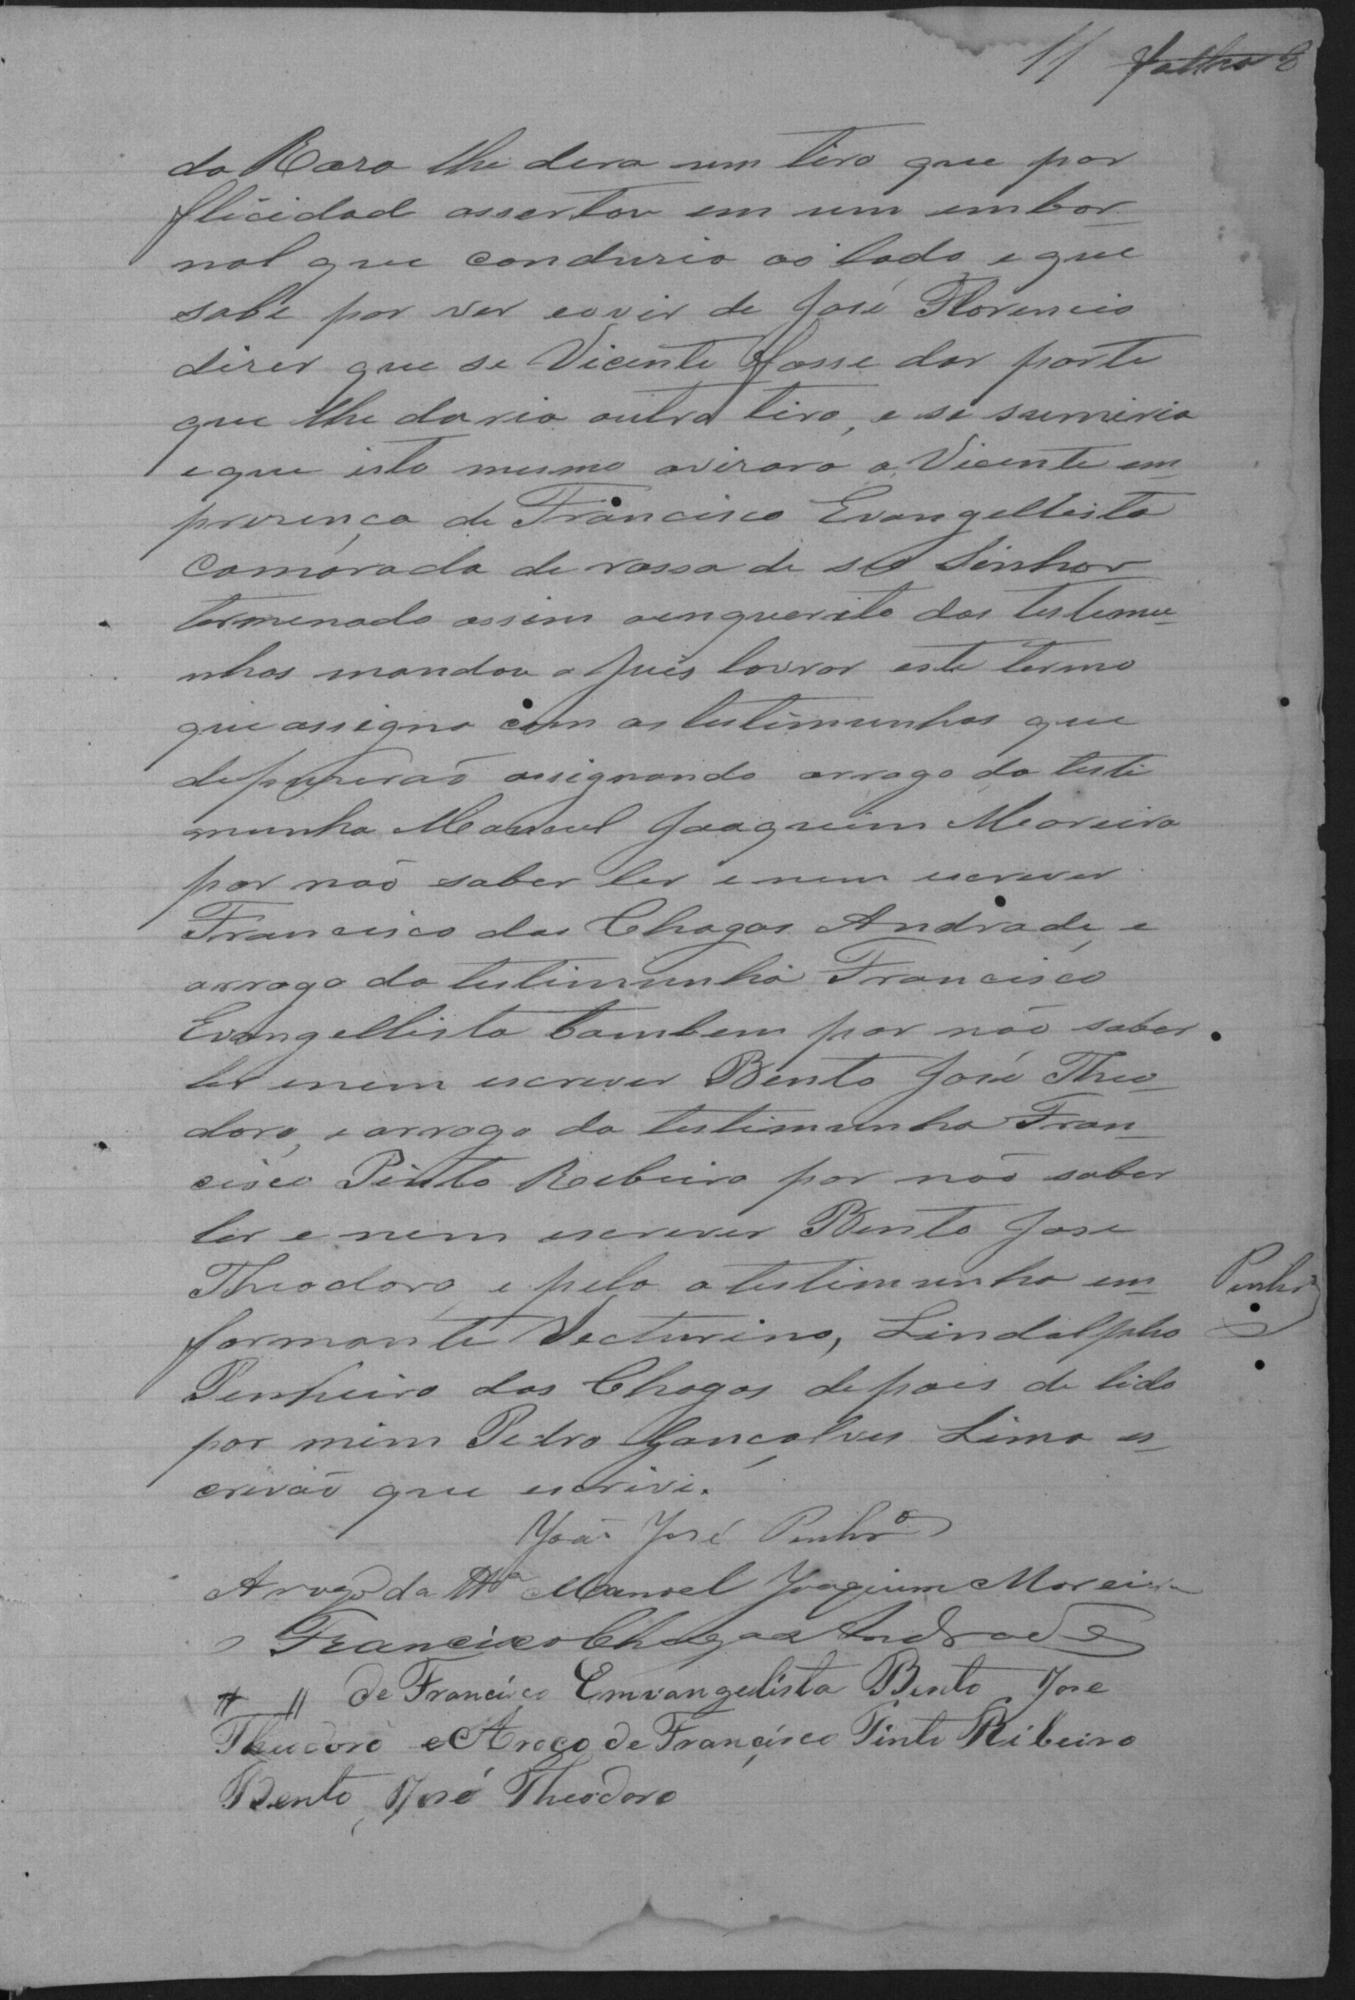 11 Folha 8
da Rosa lhe dera um tiro que por
flicidad assertou em um embor-
nal que conduzia ao lado e que
sabe por ver eovir de José Florencio
dizer que se Vicente fosse dar parte
que lhe daria outro tiro, e se sumiria
e que isto mesmo avizara a Vicente em
prezença de Francisco Evangellista
Camarada de rossa de seo Senhor
termenado assim oenquerito das testemu-
nhas mandou o Juis lavrar este termo
que assigna com as testimunhas que
depuzerão assignando arrogo da testi
munha Manoel Joaquim Moreira
por não saber ler e nem escrever
Francisco das Chagas Andrade, e
arrogo da testimunha Francisco
Evangellista tambem por não saber
ler enem escrever Bento José Theo-
doro, e arrogo da testimunha Fran-
cisco Pinto Ribeiro por não saber
ler e nem escrever Bento Jose
Theodoro, e pela a testimunha em-
formante Vecturino, Lindolpho
Penheiro das Chagas depois de lido
por mim Pedro Gonçalves Lima es-
crivão que escrivi.
Penhro
João José Penhro
Arrogo da tta Manoel Joaquim Moreira
Francisco Chagas Andrade
" " de Francisco Emvangelista Bento Jose
Theodoro e Arogo de Francisco Pinto Ribeiro
Bento José Theodoro